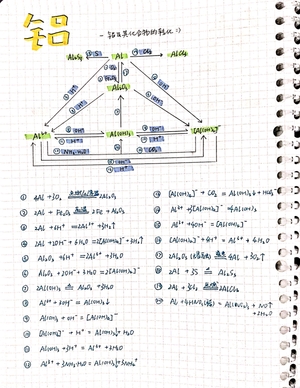 铝
一铝及其化合物的转化
Al₂S₃ S Al Cl₂ AlCl₃
Al₂O₃
Al³⁺ Al(OH)₃ [Al(OH)₄]⁻
① 4Al+3O₂ 2Al₂O₃
② 2Al+Fe₂O₃ 高温 2Fe+Al₂O₃
③ 2Al+6H⁺=2Al³⁺+3H₂↑
④ 2Al+2OH⁻+6H₂O=2[Al(OH)₄]⁻+3H₂↑
⑤ Al₂O₃+6H⁺=2Al³⁺+3H₂O
⑥ Al₂O₃+2OH⁻+3H₂O=2[Al(OH)₄]⁻
⑦ 2Al(OH)₃ △ Al₂O₃+3H₂O
⑧ Al³⁺+3OH⁻=Al(OH)₃↓
⑨ Al(OH)₃+OH⁻=[Al(OH)₄]⁻
⑩ [Al(OH)₄]⁻+H⁺=Al(OH)₃↓+H₂O
⑪ Al(OH)₃+3H⁺=Al³⁺+3H₂O
⑫ Al³⁺+3NH₃·H₂O=Al(OH)₃↓+3NH₄⁺
⑬ [Al(OH)₄]⁻+CO₂=Al(OH)₃↓+HCO₃⁻
⑭ Al³⁺+3[Al(OH)₄]⁻=4Al(OH)₃
⑮ Al³⁺+4OH⁻=[Al(OH)₄]⁻
⑯ [Al(OH)₄]⁻+4H⁺=Al³⁺+4H₂O
⑰ 2Al₂O₃ 4Al+3O₂↑
⑱ 2Al+3S △ Al₂S₃
⑲ 2Al+3Cl₂ 2AlCl₃
⑳ Al+4HNO₃ =Al(NO₃)₃+NO↑
+2H₂O